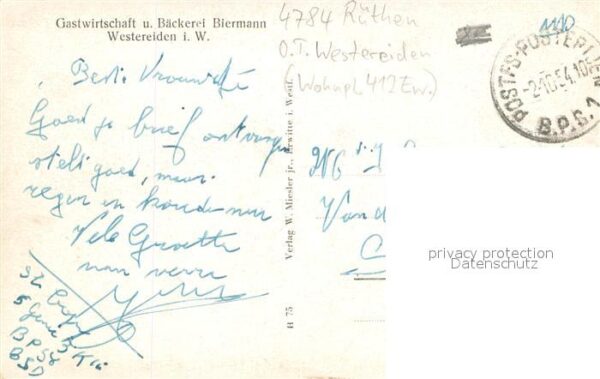 Gastwirtschaft u. Bäckerei Biermann
Westereiden i. W.
4784 Rüthen
O.T. Westereiden
(Wohnpl. 412 Ew.)
1110
POSTES-POSTERIJEN
-2-10.54.10
B.P.S.1
Goed je brief ontvangen
stelt goed, maar
regen en koude
Vele Groeten
van verre
5
BPS8
BSD
Verlag W. Miesler jr., Erwitte i. Westf.
H 75
Van d
privacy protection
Datenschutz